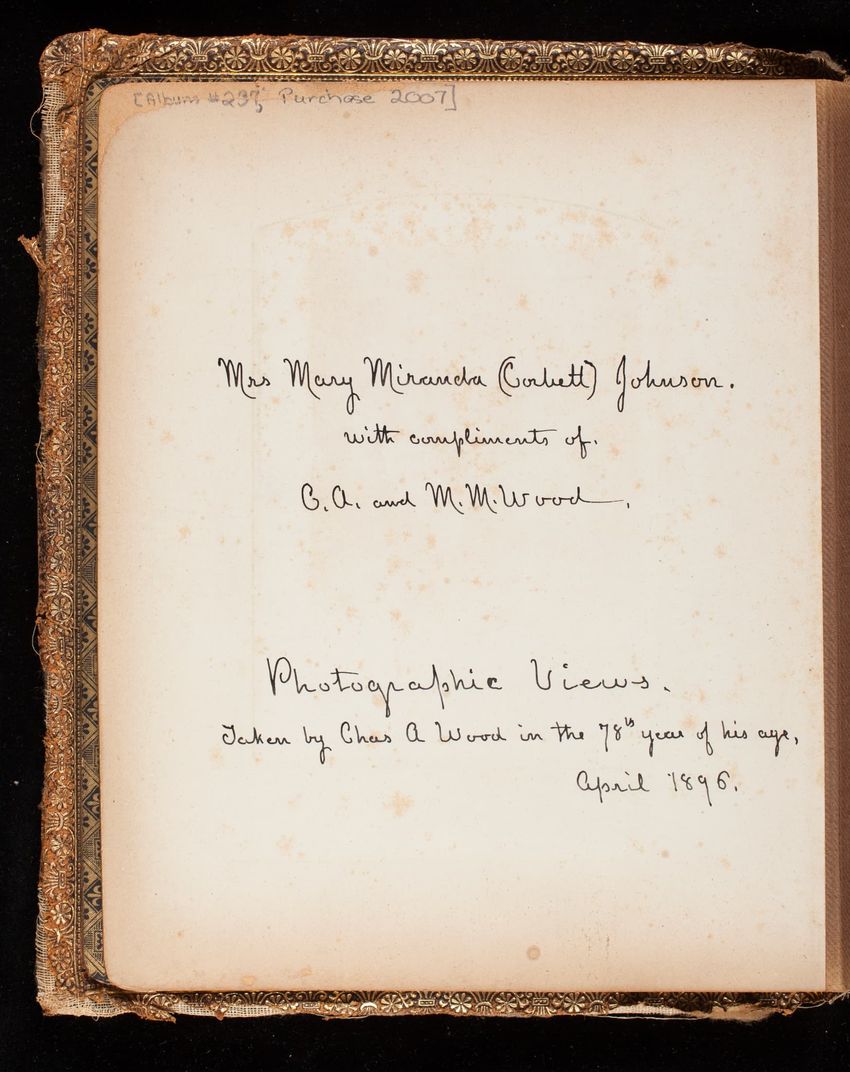 [Album #237, Purchase 2007]
Mrs Mary Miranda (Corbett) Johnson.
with compliments of.
C. A. and M. M. Wood.
Photographic Views.
Taken by Chas A Wood in the 78th year of his age,
April 1896.